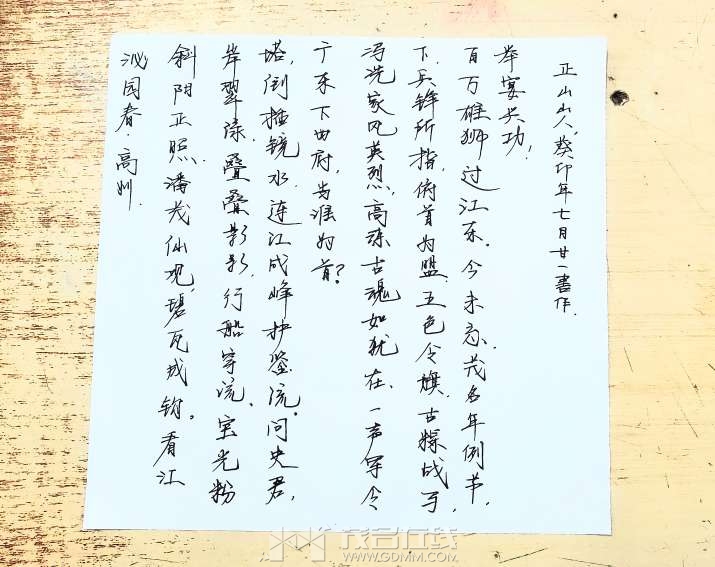 沁园春·高州.
斜阳正照.潘茂仙观,碧瓦成钩。看江
岸翠绿,叠叠影影,行船穿流、宝光粉
塔,倒插镜水,连江成峰护鉴流。问史君,
广东下四府,当谁为首?
冯冼家风英烈,高凉古魂如犹在、一声军令
下,兵锋所指,俯首为盟,五色令旗,古粽战子,
百万雄狮过江东.今未忘、茂名年例节.
举宴共功,
正山山人,癸卯年七月廿一書作.
茂名在线
WWW.GDMM.COM